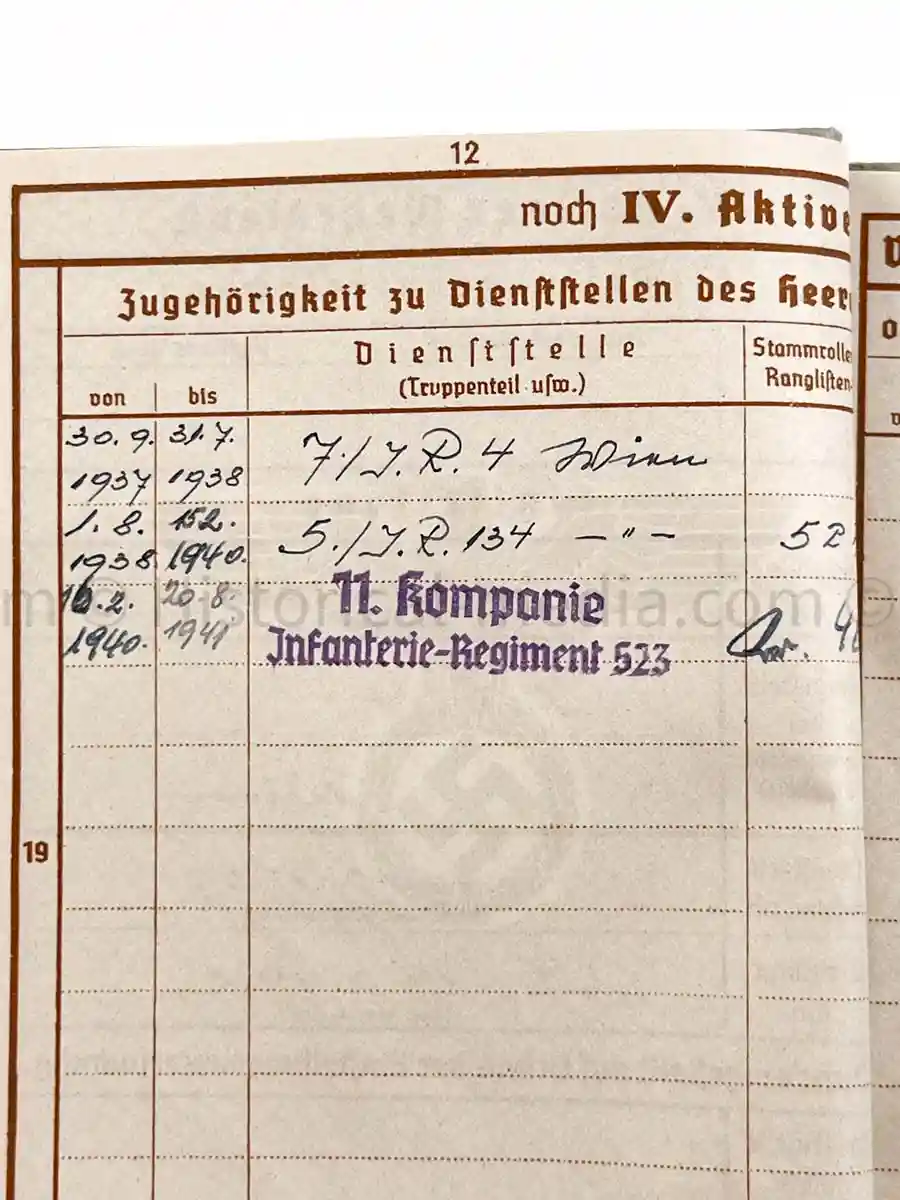 12
noch IV. Aktive
Zugehörigkeit zu Dienststellen des Heer
von
bis
Dienststelle
(Truppenteil usw.)
Stammrolle
Ranglisten
30. 9. 31. 7.
1937 1938
7./J.R. 4 Wien
1. 8. 15 2.
1938 1940.
5./J.R. 134 —"—
5 2
16.2. 20 8.
1940. 1941
11. Kompanie
Infanterie-Regiment 523
19